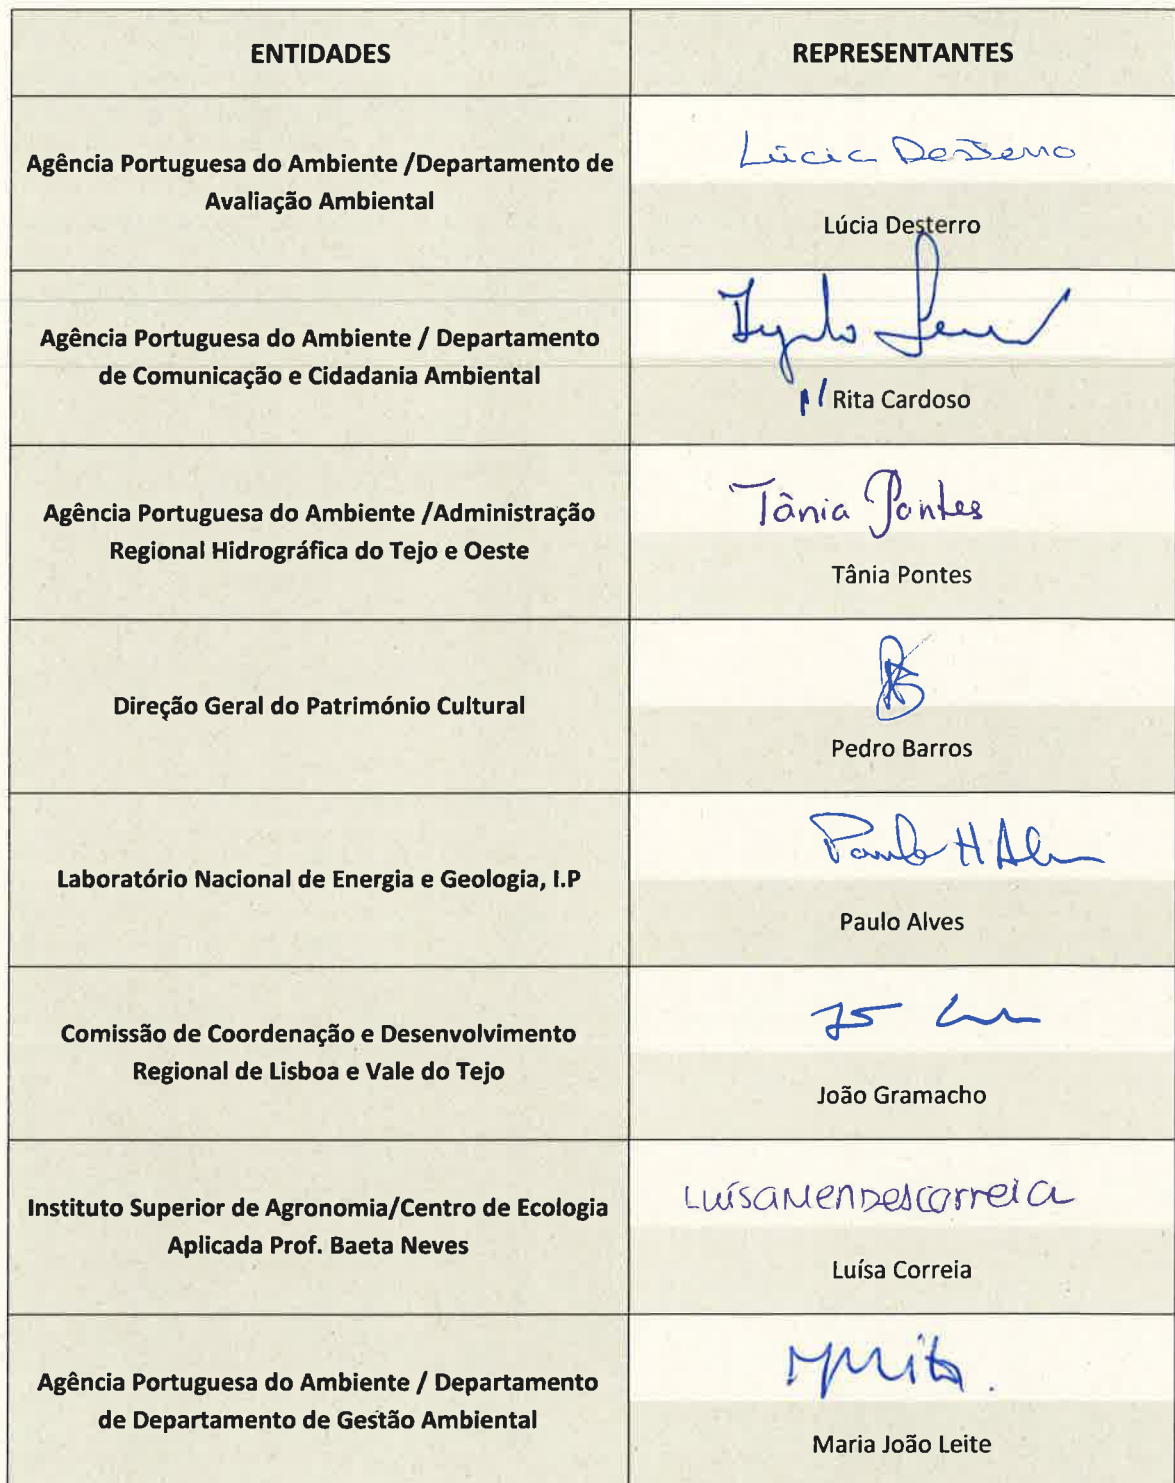 ENTIDADES
REPRESENTANTES
Agência Portuguesa do Ambiente /Departamento de
Avaliação Ambiental
Lúcia Desterro
Lúcia Desterro
Agência Portuguesa do Ambiente / Departamento
de Comunicação e Cidadania Ambiental
p/ Rita Cardoso
Agência Portuguesa do Ambiente /Administração
Regional Hidrográfica do Tejo e Oeste
Tânia Pontes
Tânia Pontes
Direção Geral do Património Cultural
Pedro Barros
Laboratório Nacional de Energia e Geologia, I.P
Paulo H Alves
Paulo Alves
Comissão de Coordenação e Desenvolvimento
Regional de Lisboa e Vale do Tejo
João Gramacho
Instituto Superior de Agronomia/Centro de Ecologia
Aplicada Prof. Baeta Neves
Luísa Mendes Correia
Luísa Correia
Agência Portuguesa do Ambiente / Departamento
de Departamento de Gestão Ambiental
Maria João Leite